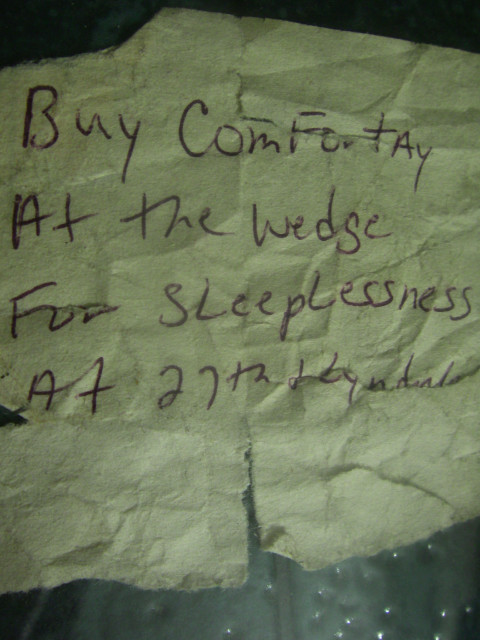 Buy ComFortAy
At the wedge
For SLeepLessness
At 27th + Lyndale